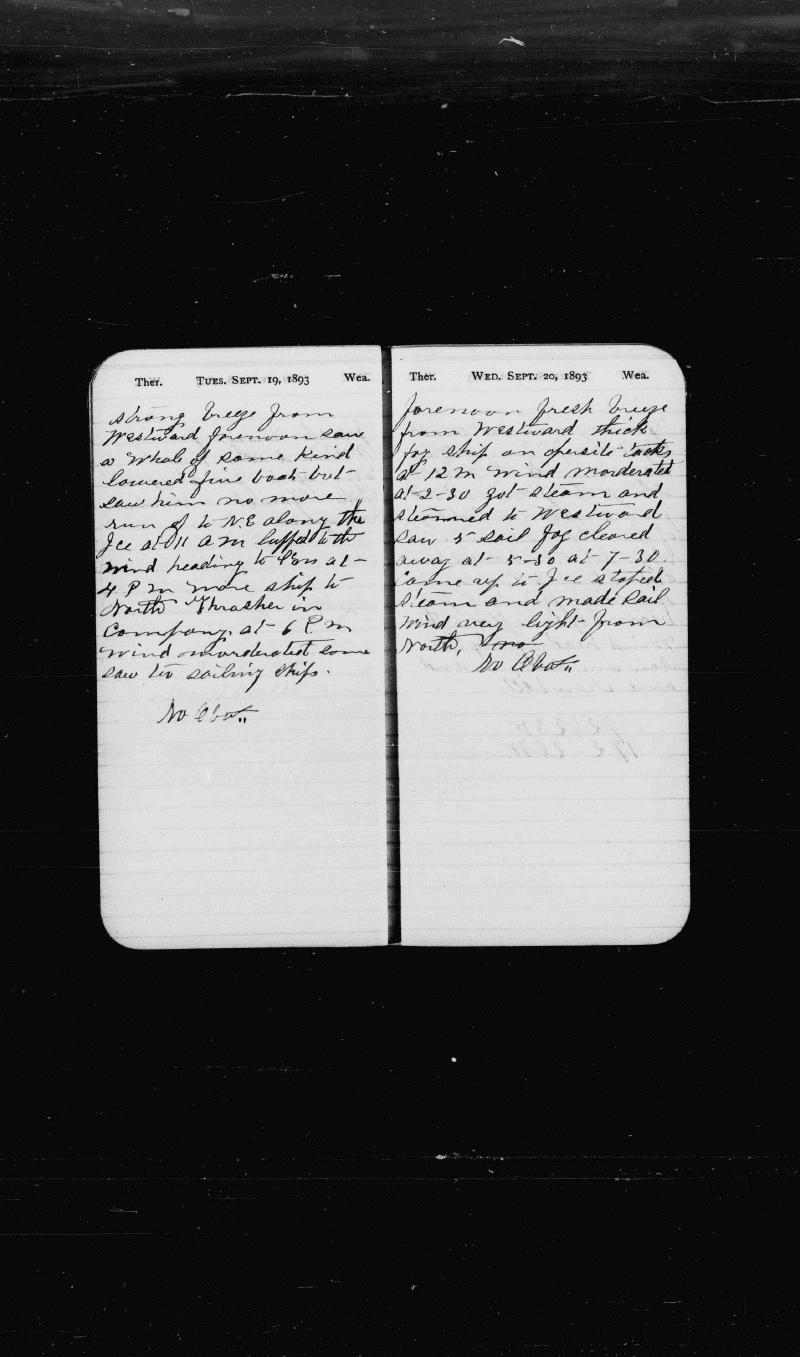 Ther. Tues. Sept. 19, 1893 Wea.
strong breeze from
Westward forenoon saw
a Whale of some kind
lowered five boats but
saw him no more
run of to N.E along the
Ice at 11 A M luffed to the
wind heading to at
4 P M wore ship to
North Thrasher in
Company. at 6 P M
wind morderated some
saw two sailing ships.
No Obs"
Ther. Wed. Sept. 20, 1893 Wea.
forenoon fresh breeze
from Westward thick
fog ship on opersite tacks
at 12 M wind morderated
at 2-30 got steam and
steamed to Westward
saw 5 sail fog cleared
away at 5-30 at 7-30
Came up to Ice stoped
steam and made sail
wind very light from
North,
No Obs"